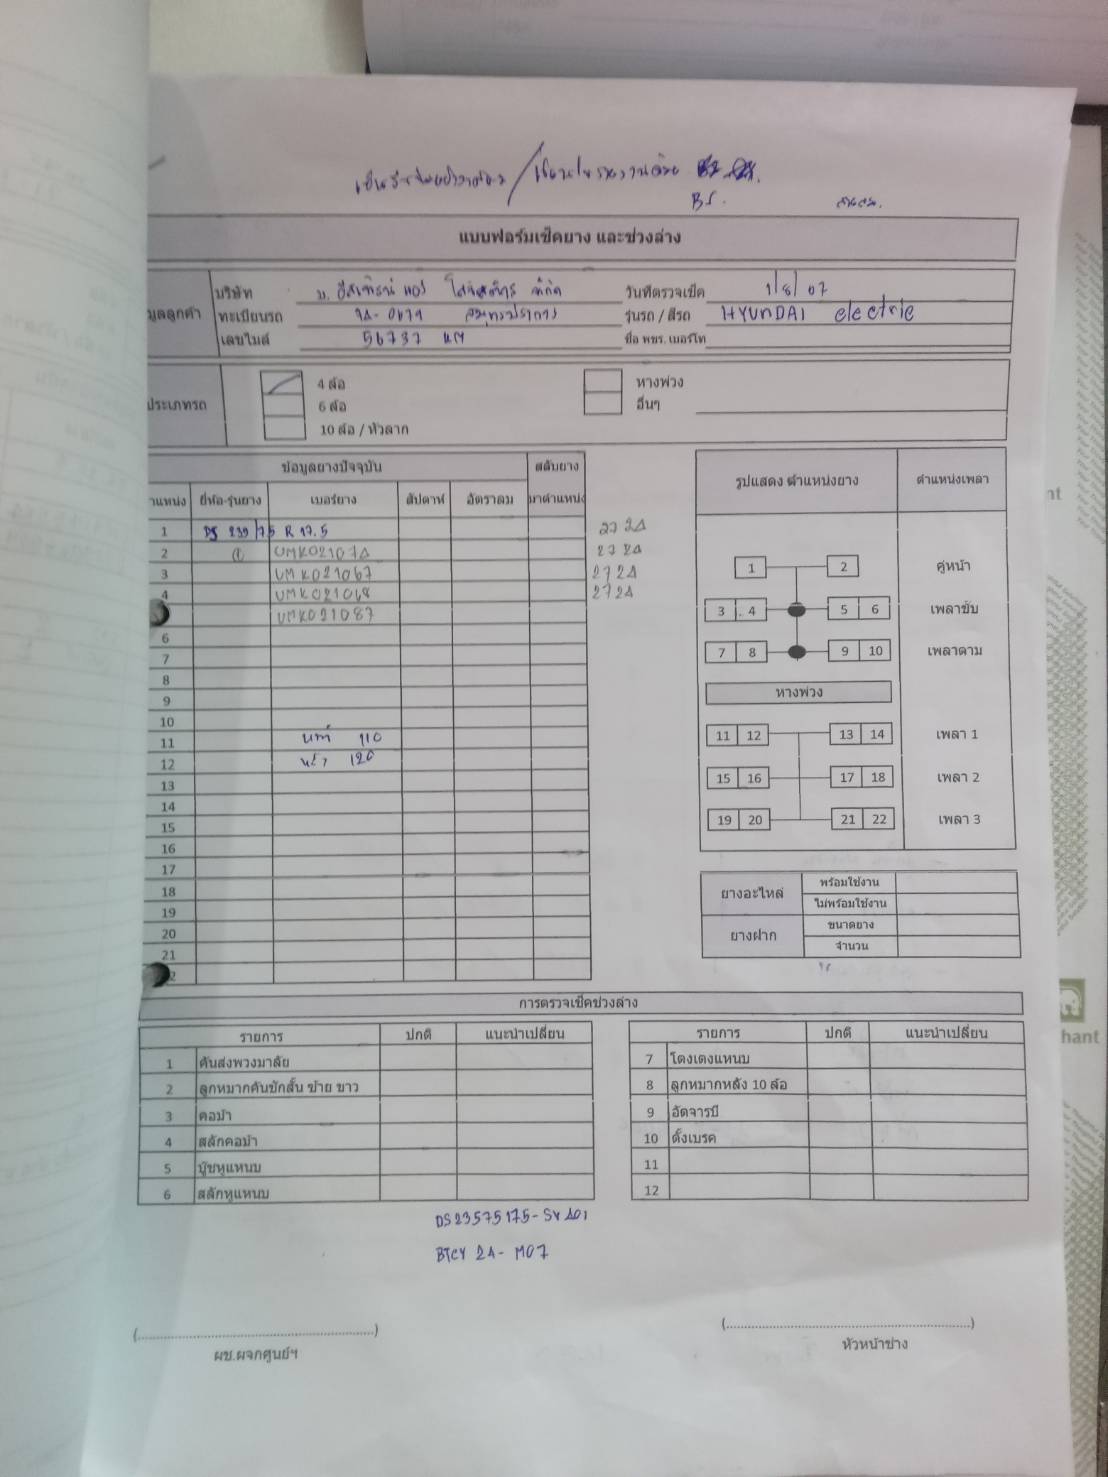 BS.
แบบฟอร์มเช็คยาง และช่วงล่าง
มูลลูกค้า
บริษัท
วันที่ตรวจเช็ค 1/8/07
ทะเบียนรถ สมุทรปราการ
รุ่นรถ / สีรถ HYUNDAI electric
เลขไมล์ 56737 กม
ชื่อ พขร. เบอร์โท
ประเภทรถ
4 ล้อ
6 ล้อ
10 ล้อ / หัวลาก
หางพ่วง
อื่นๆ
ข้อมูลยางปัจจุบัน สลับยาง
ยี่ห้อ-รุ่นยาง เบอร์ยาง สัปดาห์ อัตราลม มาตำแหน่ง
1 DS 235/75 R 17.5 2724
2 UMK021074 2724
3 UMK021067 2724
4 UMK021068 2724
UMK021087
6
7
8
9
10
11 110
12 120
13
14
15
16
17
18
19
20
21
รูปแสดง ตำแหน่งยาง ตำแหน่งเพลา
1 2 คู่หน้า
3 4 5 6 เพลาขับ
7 8 9 10 เพลาตาม
หางพ่วง
11 12 13 14 เพลา 1
15 16 17 18 เพลา 2
19 20 21 22 เพลา 3
ยางอะไหล่ พร้อมใช้งาน
ไม่พร้อมใช้งาน
ยางฝาก ขนาดยาง
จำนวน
การตรวจเช็คช่วงล่าง
รายการ ปกติ แนะนำเปลี่ยน
1 คันส่งพวงมาลัย
2 ลูกหมากคันชักสั้น ซ้าย ขาว
3 คอม้า
4 สลักคอม้า
5 บู๊ชหูแหนบ
6 สลักหูแหนบ
รายการ ปกติ แนะนำเปลี่ยน
7 โตงเตงแหนบ
8 ลูกหมากหลัง 10 ล้อ
9 อัดจารบี
10 ตั้งเบรค
11
12
DS23575175-SV401
BTCY 24-M07
(..........)
ผช.ผจกศูนย์ฯ
(..........)
หัวหน้าช่าง
hant